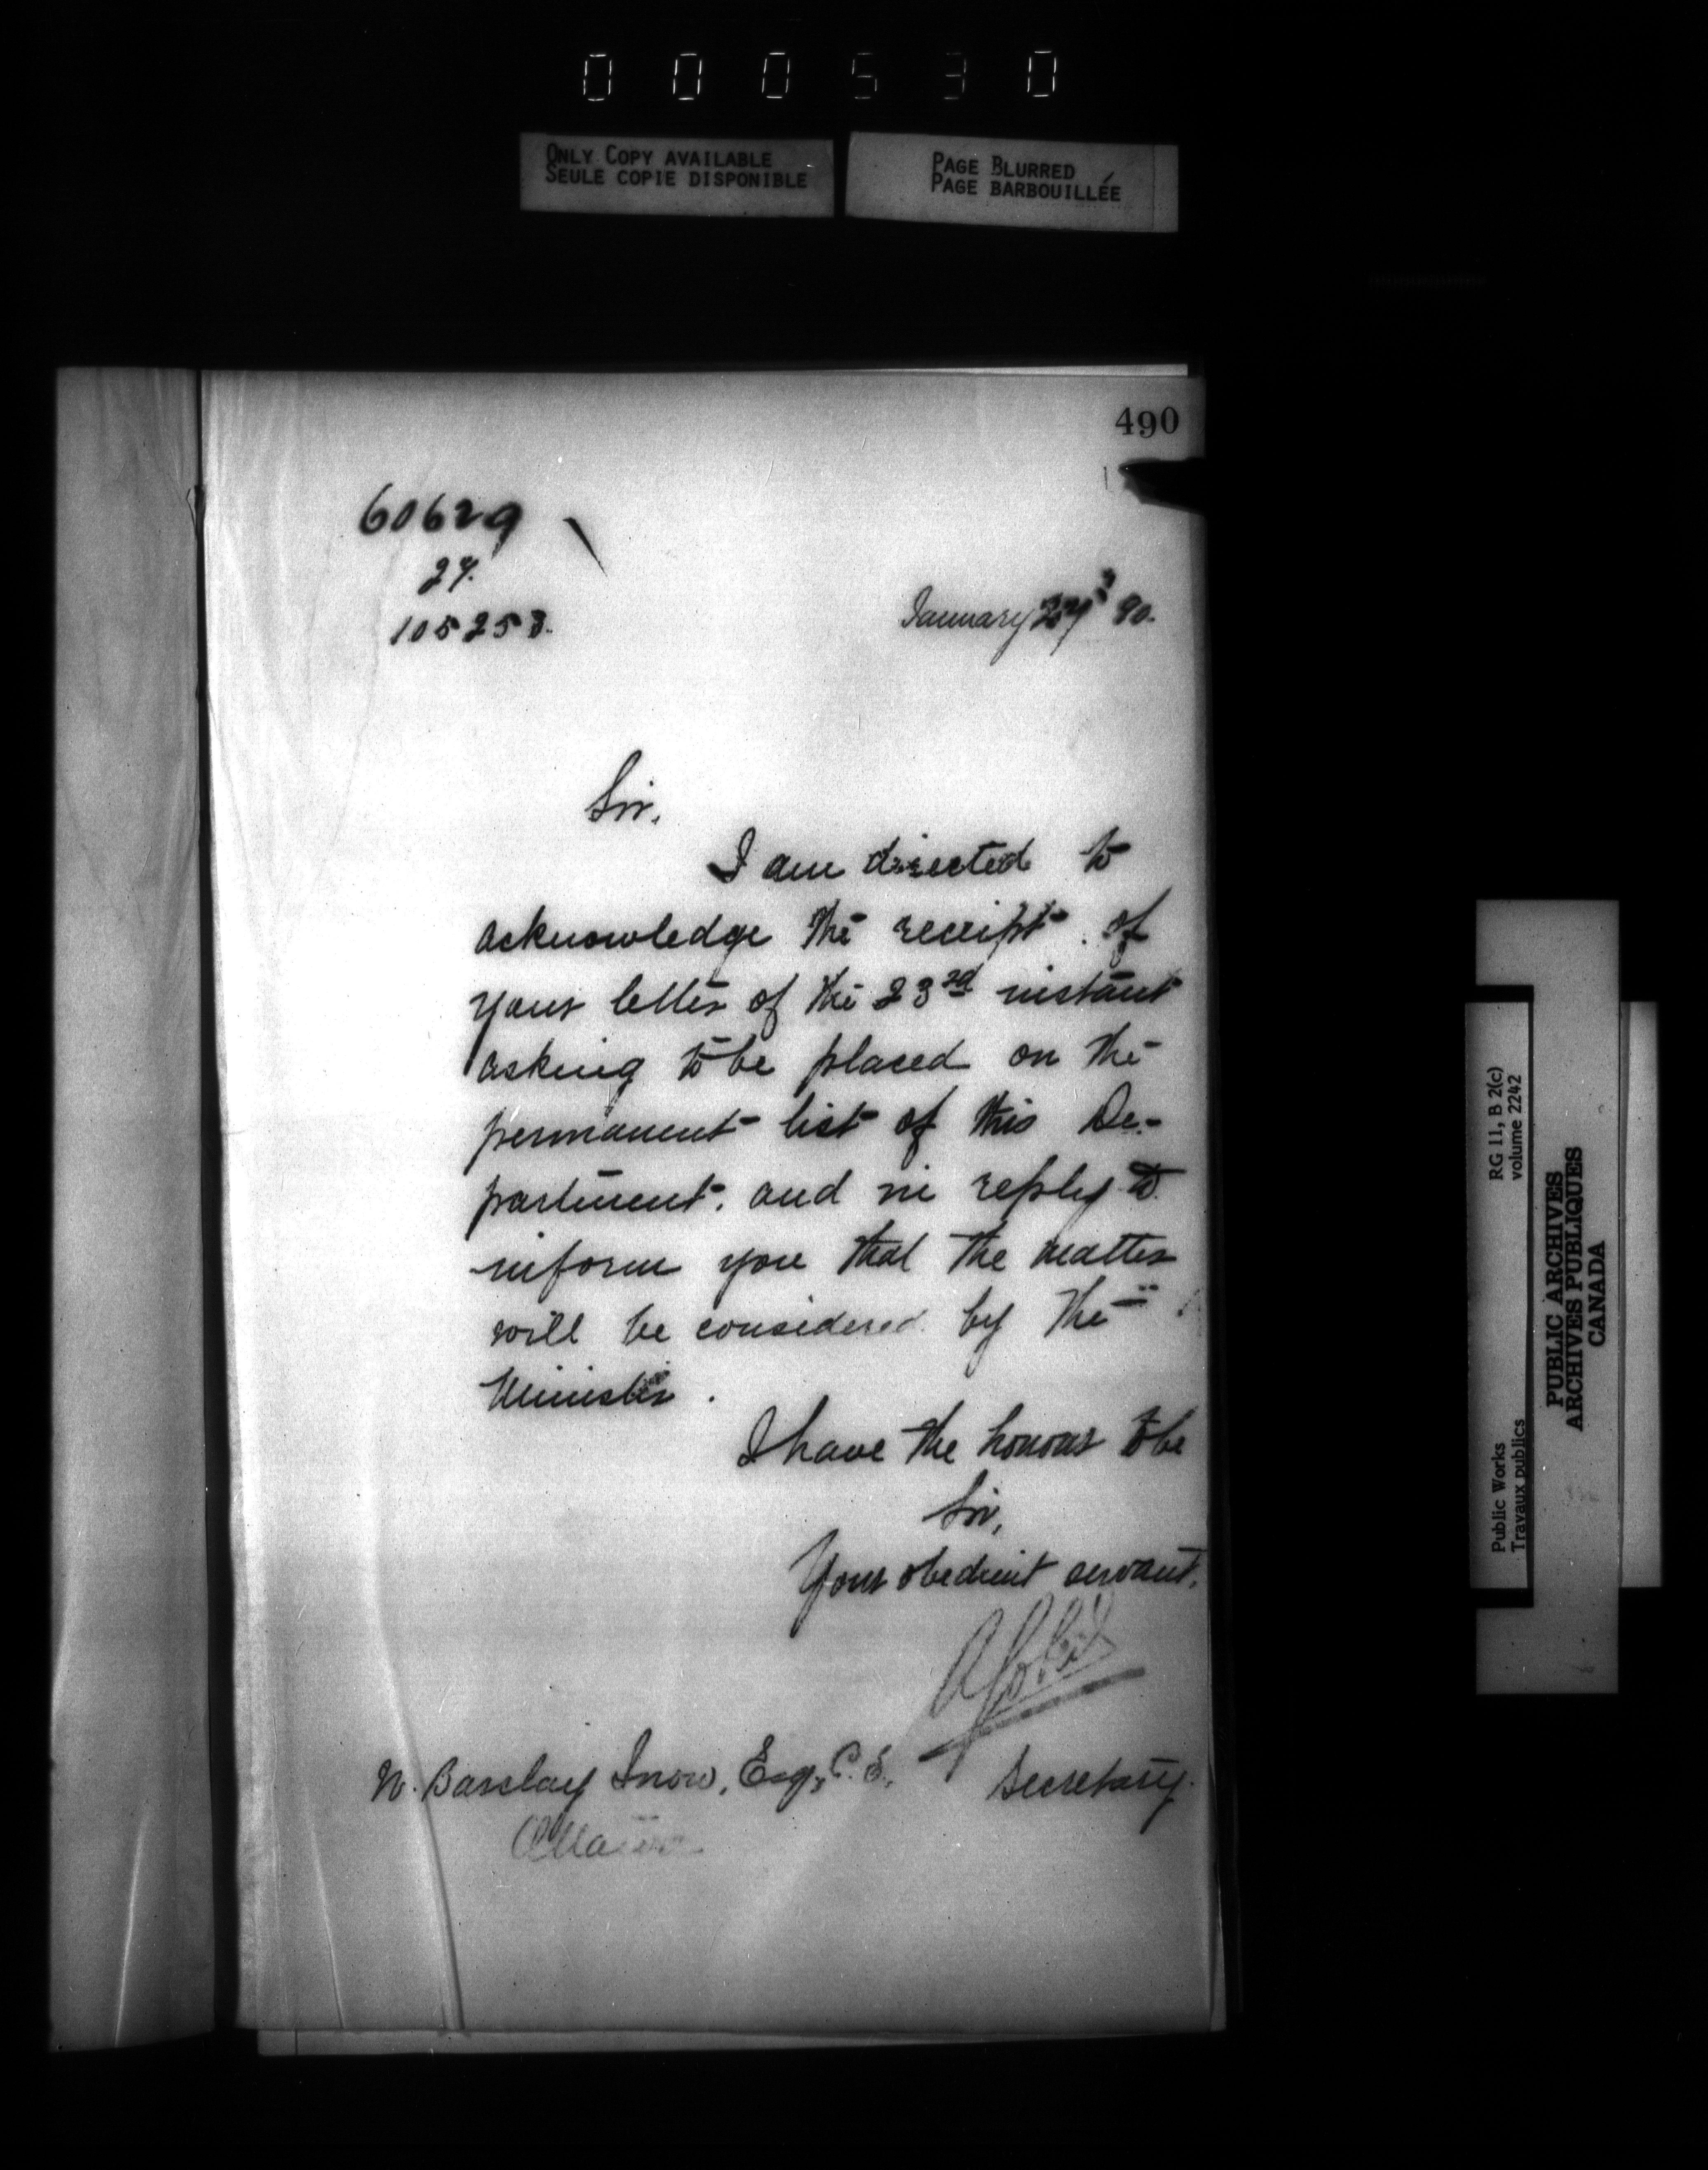 000530
ONLY COPY AVAILABLE
SEULE COPIE DISPONIBLE
PAGE BLURRED
PAGE BARBOUILLÉE
490
60629
27.
105253.
January 90.
Sir,
I am directed to
acknowledge the receipt of
your letter of the 23rd instant
asking to be placed on the
permanent list of this De-
partment, and in reply to
inform you that the matter
will be considered by the
Minister.
I have the honour to be
Sir,
Your obedient servant,
Secretary.
W. Barclay Snow, Esq, C.E.,
Ottawa
Public Works
Travaux publics
RG 11, B 2(c)
volume 2242
PUBLIC ARCHIVES
ARCHIVES PUBLIQUES
CANADA